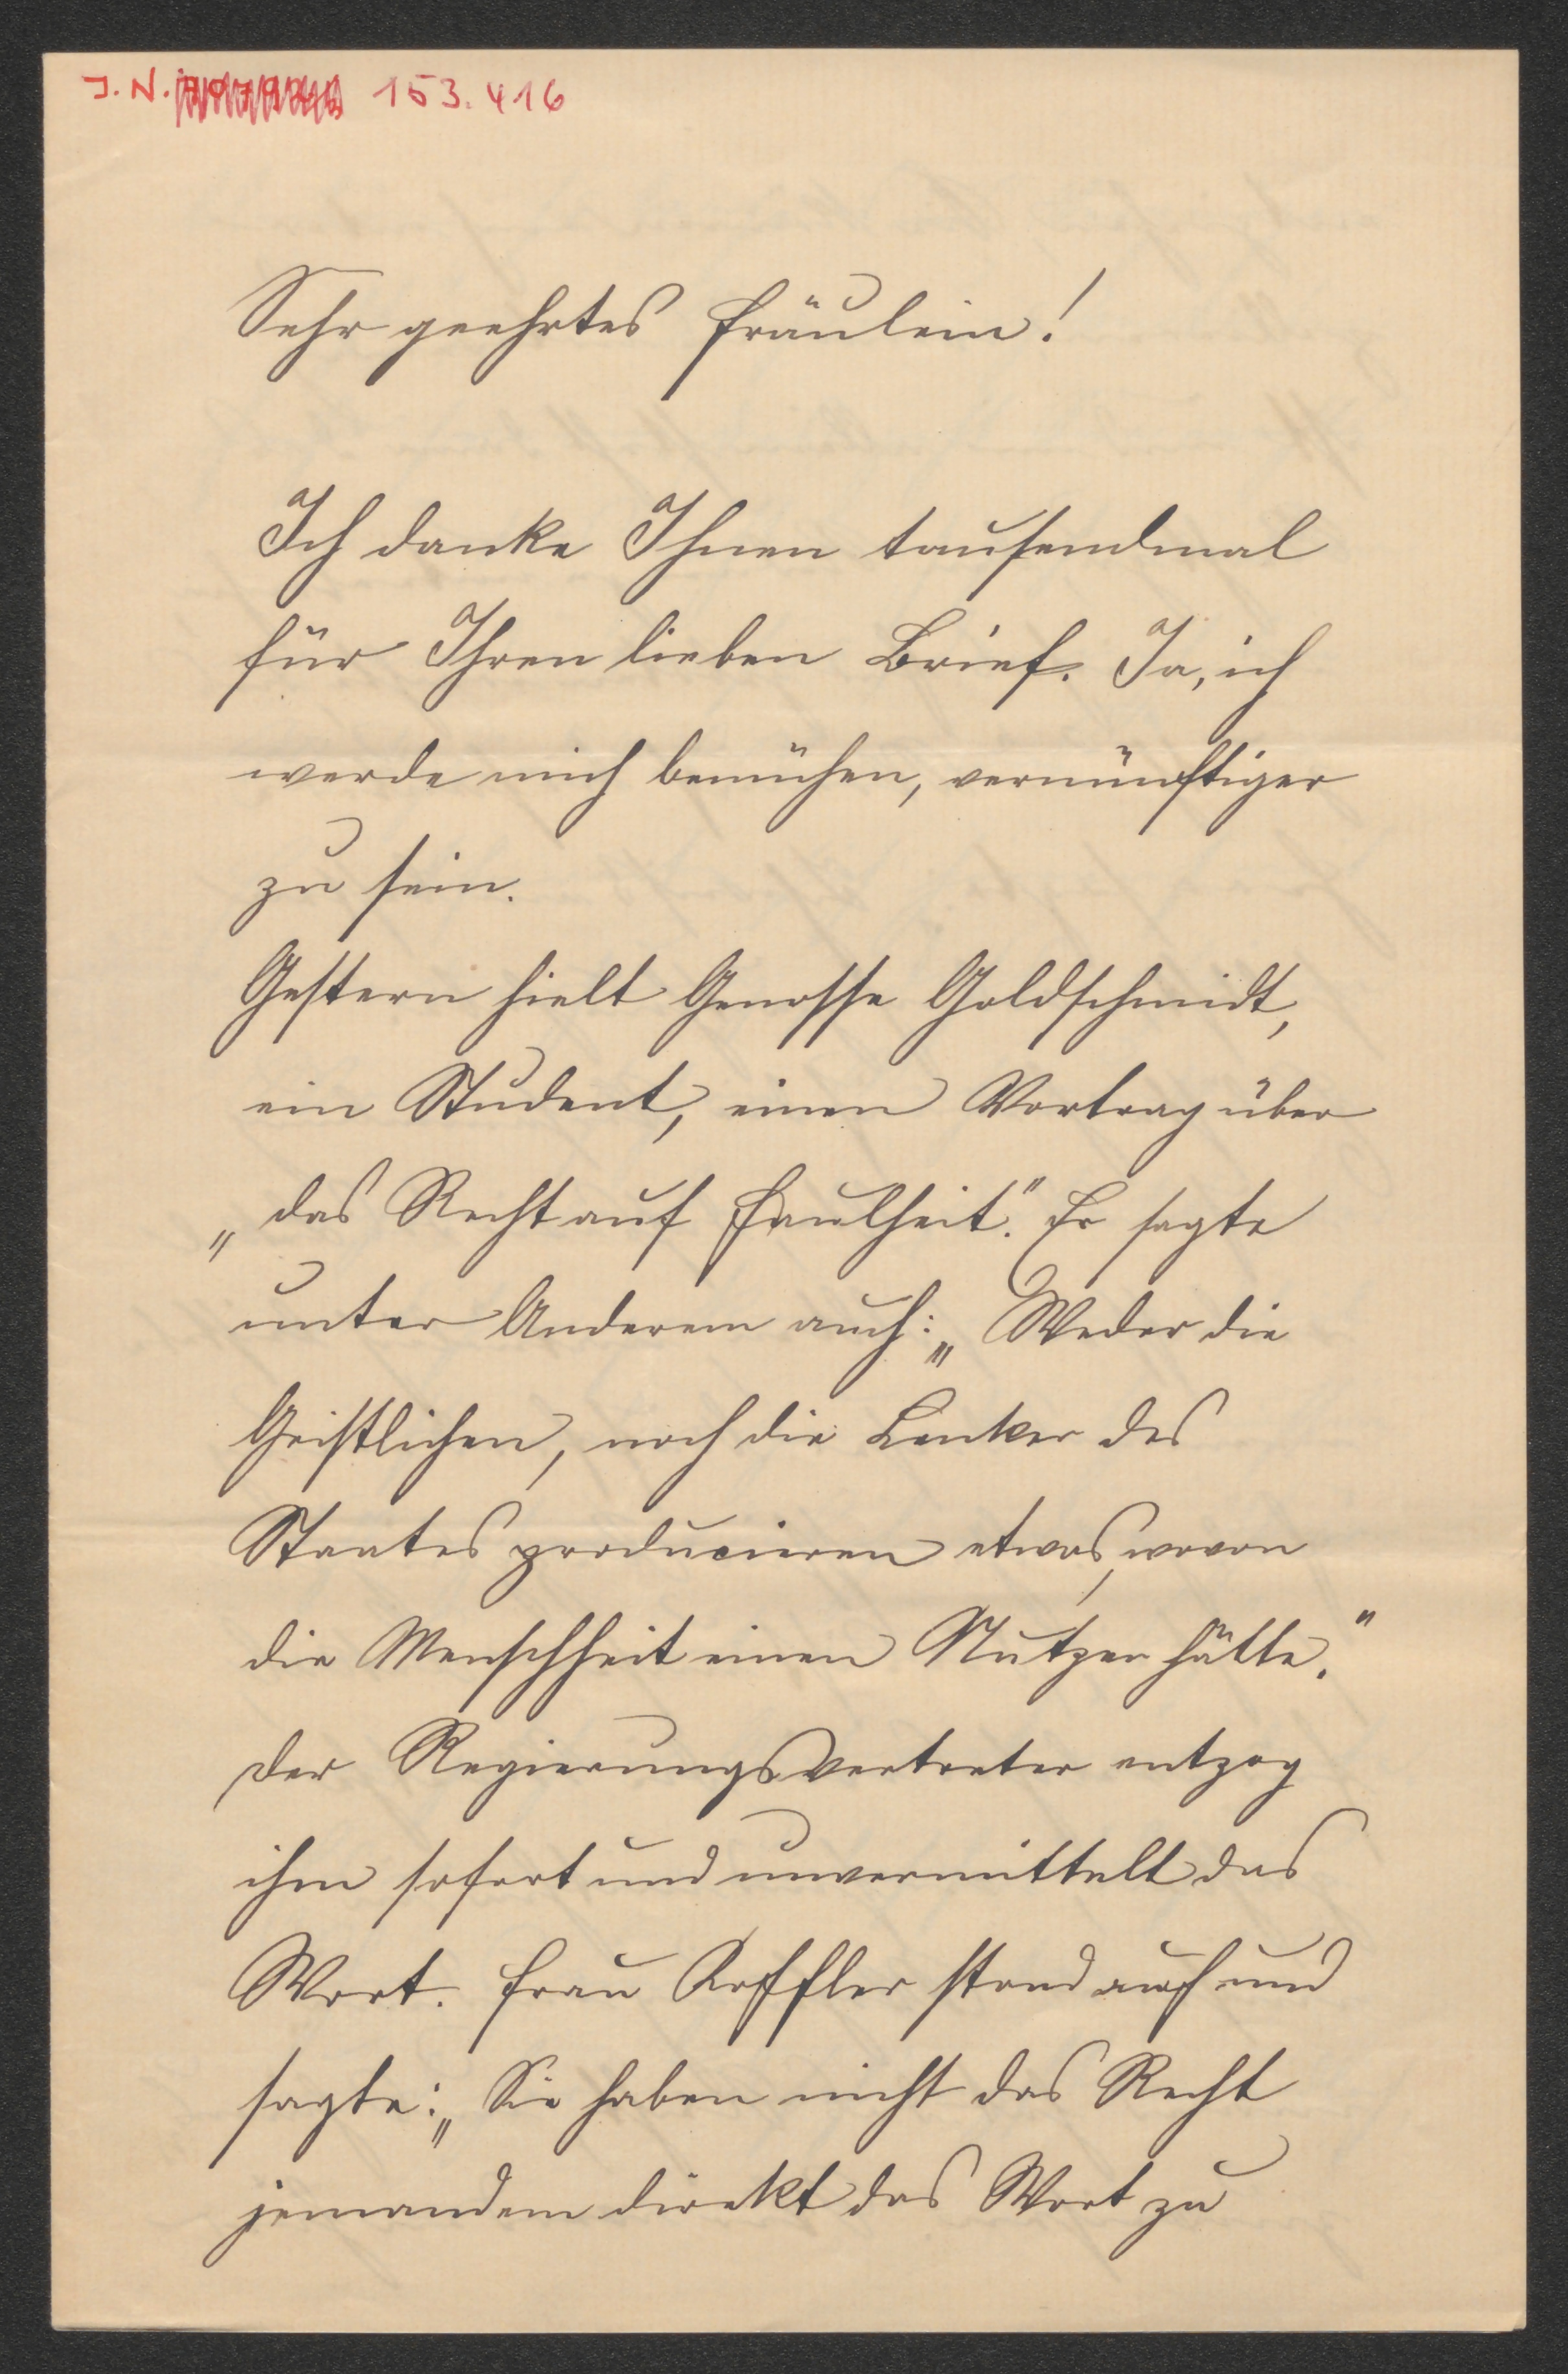 J. N. 153.416
Sehr geehrtes Fräulein!
Ich danke Ihnen tausendmal
für Ihren lieben Brief. Ja, ich
werde mich bemühen, vernünftiger
zu sein.
Gestern hielt Genosse Goldschmidt,
ein Student, einen Vortrag über
„das Recht auf Faulheit." Er sagte
unter Anderem auch: „Weder die
Geistlichen, noch die Lenker des
Staates producieren etwas, wovon
die Menschheit einen Nutzen hätte."
Der Regierungsvertreter entzog
ihm sofort und unvermittelt das
Wort. Frau Koffler stand auf und
sagte: „Sie haben nicht das Recht
jemandem direkt das Wort zu